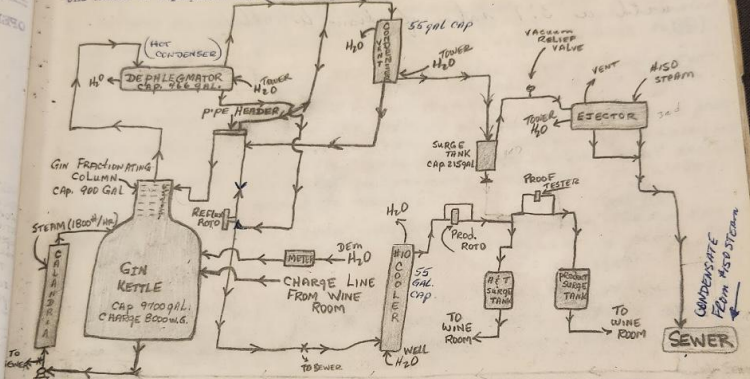 (HOT
CONDENSER)
H²O
DEPHLEGMATOR
CAP. 466 GAL.
TOWER
H2O
PIPE HEADER
H2O
VENT
CONDENSER
55 gal CAP
TOWER
H2O
VACUUM
RELIEF
VALVE
VENT
#150
STEAM
TOWER
H2O
EJECTOR
SURGE
TANK
CAP. 215gal
GIN FRACTIONATING
COLUMN
CAP. 900 GAL
STEAM (1800#/HR)
CALANDRIA
REFLUX
ROTO
GIN
KETTLE
CAP 9700 GAL.
CHARGE 8000 W.G.
METER
DEM
H2O
CHARGE LINE
FROM WINE
ROOM
H2O
#10
COOLER
55
GAL.
CAP
PROD.
ROTO
PROOF
TESTER
H&T
SURGE
TANK
PRODUCT
SURGE
TANK
TO
WINE
ROOM
TO
WINE
ROOM
WELL
H2O
TO SEWER
TO
SEWER
CONDENSATE
FROM #150 STEAM
SEWER